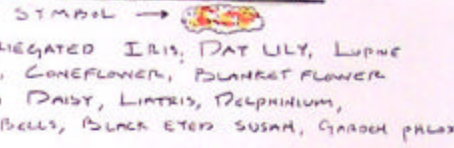 SYMBOL →
IEGATED IRIS, DAY LILY, LUPINE
, CONEFLOWER, BLANKET FLOWER
DAISY, LIATRIS, DELPHINIUM,
BELLS, BLACK EYED SUSAN, GARDEN PHLOX